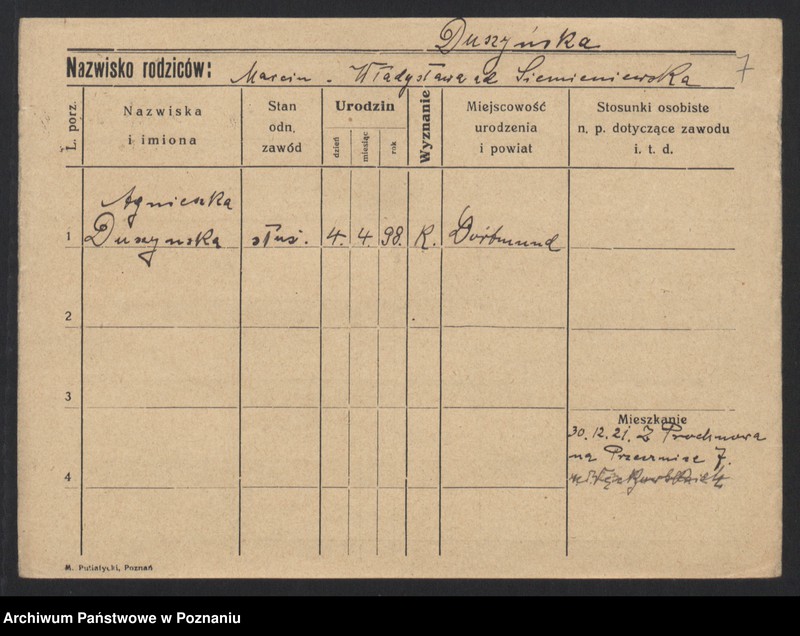 Duszyńska
Nazwisko rodziców: Marcin - Władysława zd Siemieniewska 7
L. porz.
Nazwiska i imiona
Stan odn. zawód
Urodzin
dzień
miesiąc
rok
Wyznanie
Miejscowość urodzenia i powiat
Stosunki osobiste n. p. dotyczące zawodu i. t. d.
Agnieszka
1 Duszynska służ. 4. 4. 98. K. Dortmund
2
3
Mieszkanie
30.12.21. Z Prochnowa
na Przecznicę 7.
4
M. Putiatycki, Poznań
Archiwum Państwowe w Poznaniu